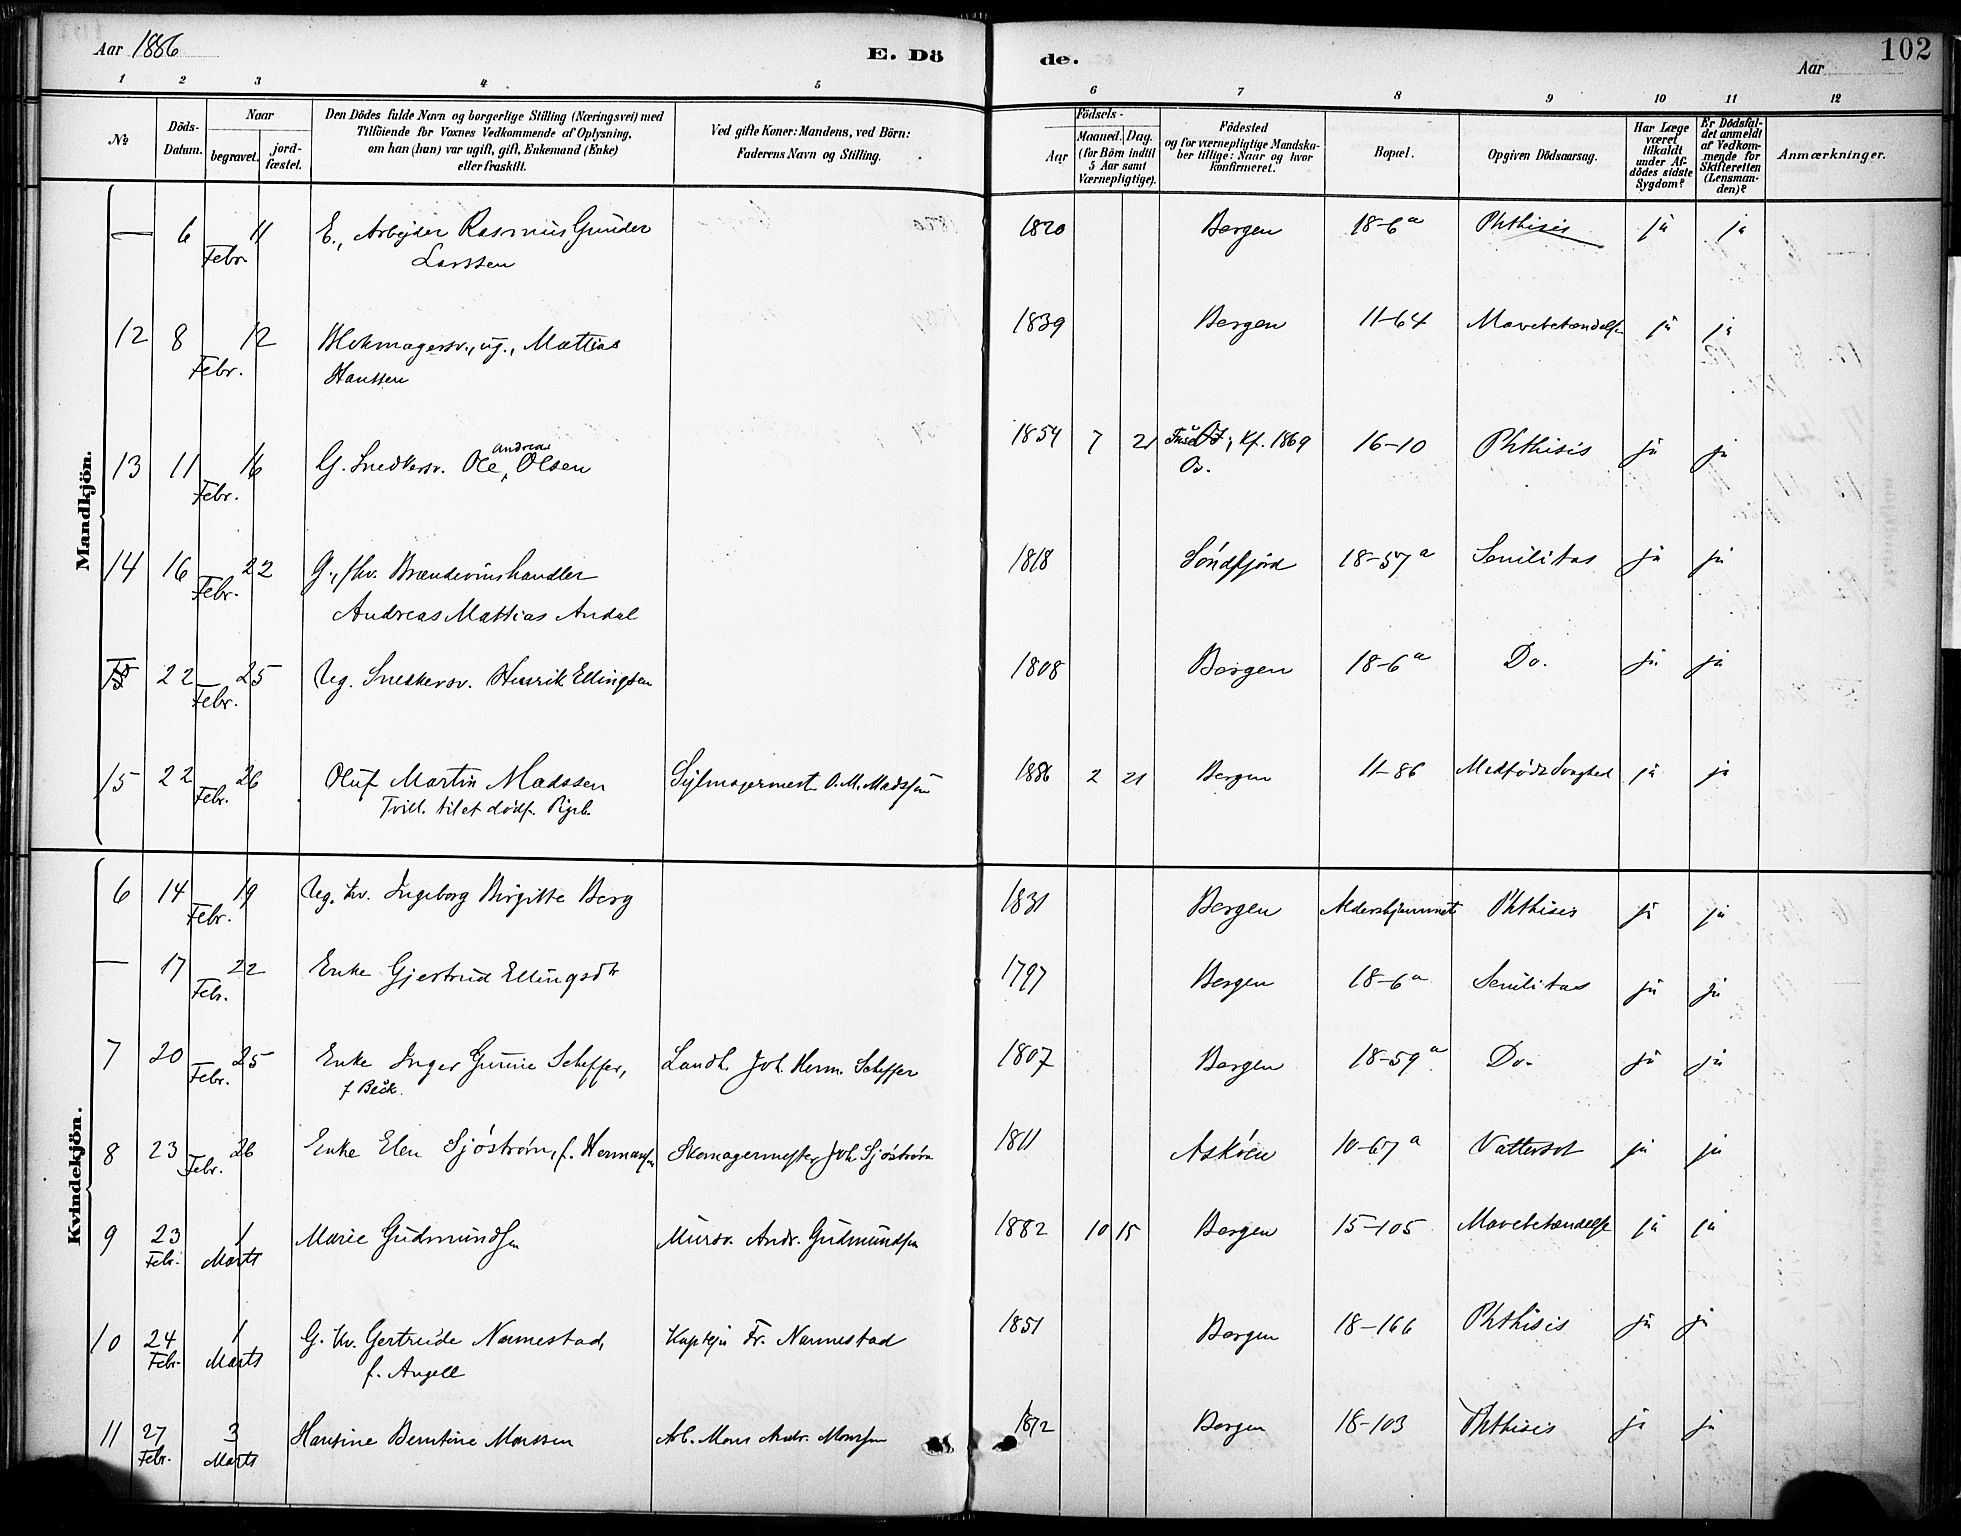 Aar 1886
E. Dö
de.
Aar
102
1 2 3 4 5 6 7 8 9 10 11 12
№
Döds-
Datum.
Naar
begravet.
jord-
fæstet.
Den Dödes fulde Navn og borgerlige Stilling (Næringsvei) med
Tilföiende for Voxnes Vedkommende af Oplysning,
om han (hun) var ugift, gift, Enkemand (Enke)
eller fraskilt.
Ved gifte Koner: Mandens, ved Börn:
Faderens Navn og Stilling.
Födsels-
Aar
Maaned. Dag.
(for Börn indtil
5 Aar samt
Værnepligtige).
Födested
og for værnepligtige Mandska-
ber tillige: Naar og hvor
konfirmeret.
Bopæl.
Opgiven Dödsaarsag.
Har Læge
været
tilkaldt
under Af-
dödes sidste
Sygdom?
Er Dödsfal-
det anmeldt
af Vedkom-
mende for
Skifteretten
(Lensman-
den)?
Anmærkninger.
Mandkjön.
— 6 11 E., Arbejder Rasmus Gunder 1820 Bergen 18-6a Phthisis ja ja
Febr. Larssen
12 8 12 Blokmagersv., ug., Mattias 1839 Bergen 11-64 Mavebetændelse ja ja
Febr. Hanssen
Andreas
13 11 16 G. Snedkersv. Ole Olsen 1854 7 21 Kf. 1869 16-10 Phthisis ja ja
Febr.
14 16 22 G., fhv. Brændevinshandler 1818 Söndfjörd 18-57a Senilitas ja ja
Febr. Andreas Mattias Andal
— 22 25 Ug. Snedkersv. Henrik Ellingsen 1808 Bergen 18-6a Do. ja ja
Febr.
15 22 26 Oluf Martin Madssen Sejlmagermest. O. M. Madssen 1886 2 21 Bergen 11-86 Medfødt Svaghed ja ja
Febr. Tvill. til et dødf. Pigeb.
Kvindekjön.
6 14 19 Ug. kv. Ingeborg Birgitte Berg 1831 Bergen Aldershjemmet Phthisis ja ja
Febr.
— 17 22 Enke Gjertrud Ellingsdtr 1797 Bergen 18-6a Senilitas ja ja
Febr.
7 20 25 Enke Inger Scheffer, Landh. Joh. Herm. Scheffer 1807 Bergen 18-59a Do. ja ja
Febr. f.
8 23 26 Enke Elen Sjöström, f. Hermansen Skomagermester Joh. Sjöström 1811 Asköen 10-67a Vattersot ja ja
Febr.
9 23 1 Marie Gudmundsen Mursv. Andr. Gudmundsen 1882 10 15 Bergen 15-105 Mavebetændelse ja ja
Febr. Marts
10 24 1 G. kv. Gertrude Nannestad, Kaptejn Fr. Nannestad 1851 Bergen 18-166 Phthisis ja ja
Febr. Marts f. Angell
11 27 3 Hansine Berntine Monssen Arb. Mons Andr. Monssen 1872 Bergen 18-103 Phthisis ja ja
Febr. Marts